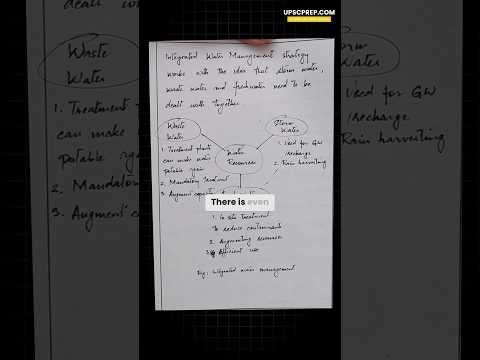 UPSCPREP.COM
Integrated Water Management strategy
works with the idea that storm water,
waste water and freshwater need to be
dealt with together
Waste
Water
Storm
Water
Water
Resources
1. Treatment plants
can make water
potable again
2. Mandatory treatment
3. Augment capacity
1. Used for GW
recharge
2. Rain harvesting
There is even
1. In situ treatment
to reduce contaminants
2. Augmenting resources
3. Efficient use
Fig: Integrated water management
Waste
Water
1. Treatment
can make
potable again
2. Mandatory
3. Augment
Storm
Water
Used for GW
recharge
Rain harvesting